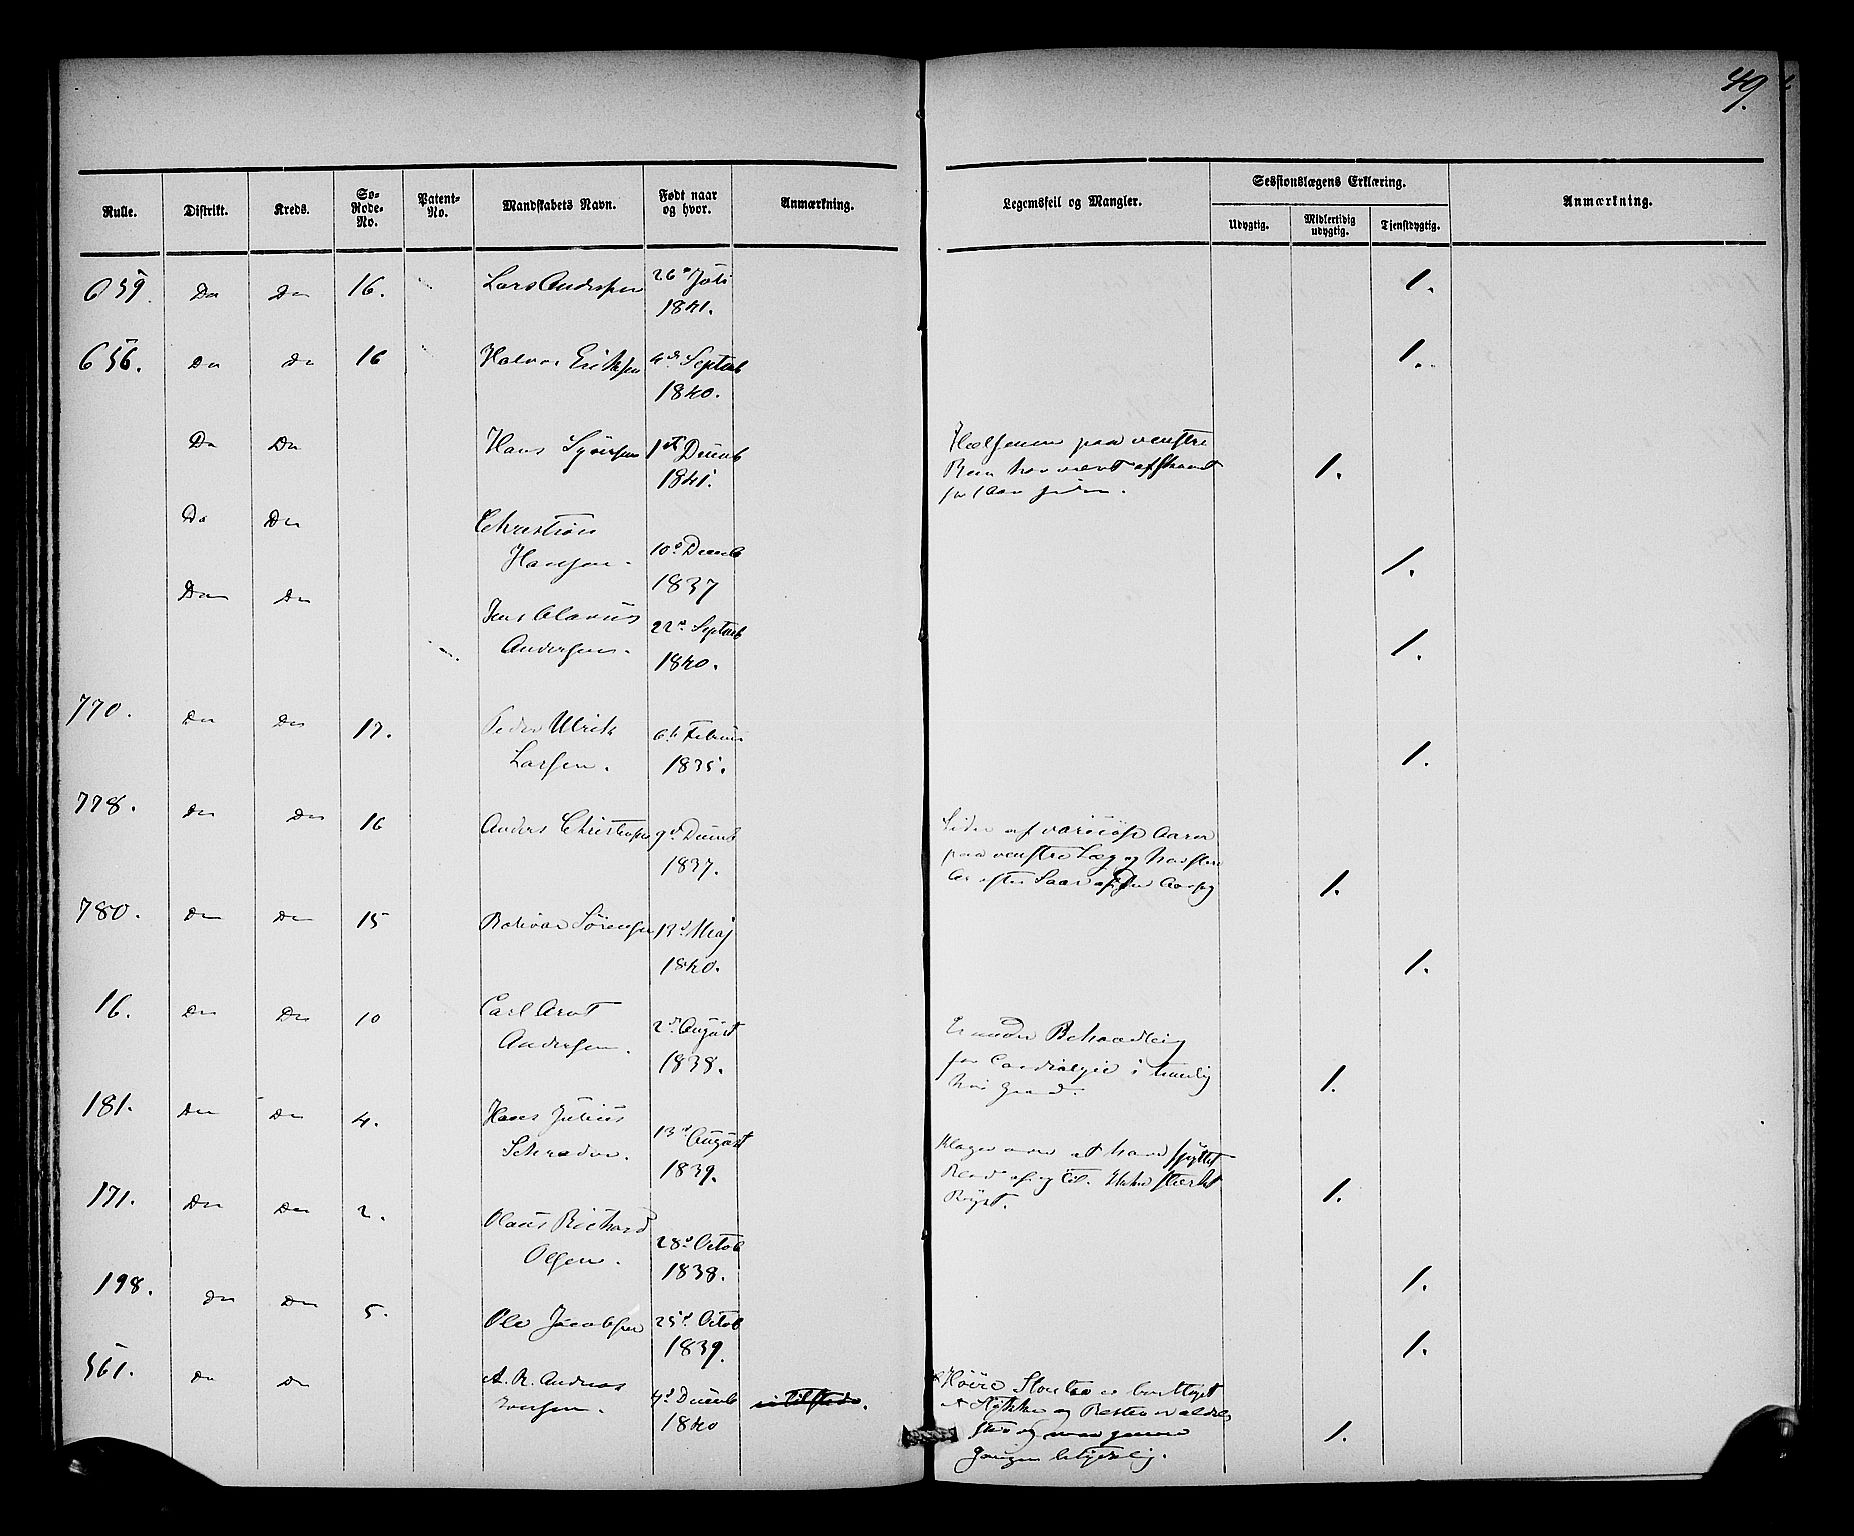 49.
Rulle. Distrikt. Kreds. So-Rode-No. Patent-No. Mandskabets Navn. Født naar og hvor. Anmærkning. Legemsfeil og Mangler. Sessionslægens Erklæring. Udygtig. Midlertidig udygtig. Tjenstdygtig. Anmærkning.
659. Do Do 16. Lars Andersen 26d Juli 1841. 1.
656. Do Do 16 Halvor Eriksen 4d Septemb 1840. 1.
Do Do Hans Syversen 1st Decemb 1841. 1.
Hælsenen paa venstre
Been har været afskaaret
for 1 Aar siden.
Do Do Christian
Hansen. 10d Decemb 1837 1.
Do Do Jens Olavus
Andersen. 22d Septemb 1840. 1.
770. Do Do 17. Peder Ulrik
Larsen. 6te Februar 1835. 1.
778. Do Do 16 Anders Christensen 9d Decemb 1837. 1.
Lider af varicøse Aarer
paa venstre Læg og har flere
Ar efter Saar
780. Do Do 15 Sørensen 17d Maj 1840. 1.
16. Do Do 10 Carl Arnt
Andersen. 2d August 1838. 1.
Er under Behandling
for Cardialgie i temelig
høi Grad.
181. Do Do 4. Hans Julius
Schrøder. 13d August 1839. 1.
Klager over at have spyttet
Blod af og til. Ikke stærkt
Bryst.
171. Do Do 2. Olaus Richard
Olsen. 28d Octob 1838. 1.
198. Do Do 5. Ole Jacobsen 25d Octob 1839. 1.
561. Do Do A. R. Andreas
Jonsen. 4d Decemb 1840 1.
Høire Stortaa er borttaget
Gangen betydelig.